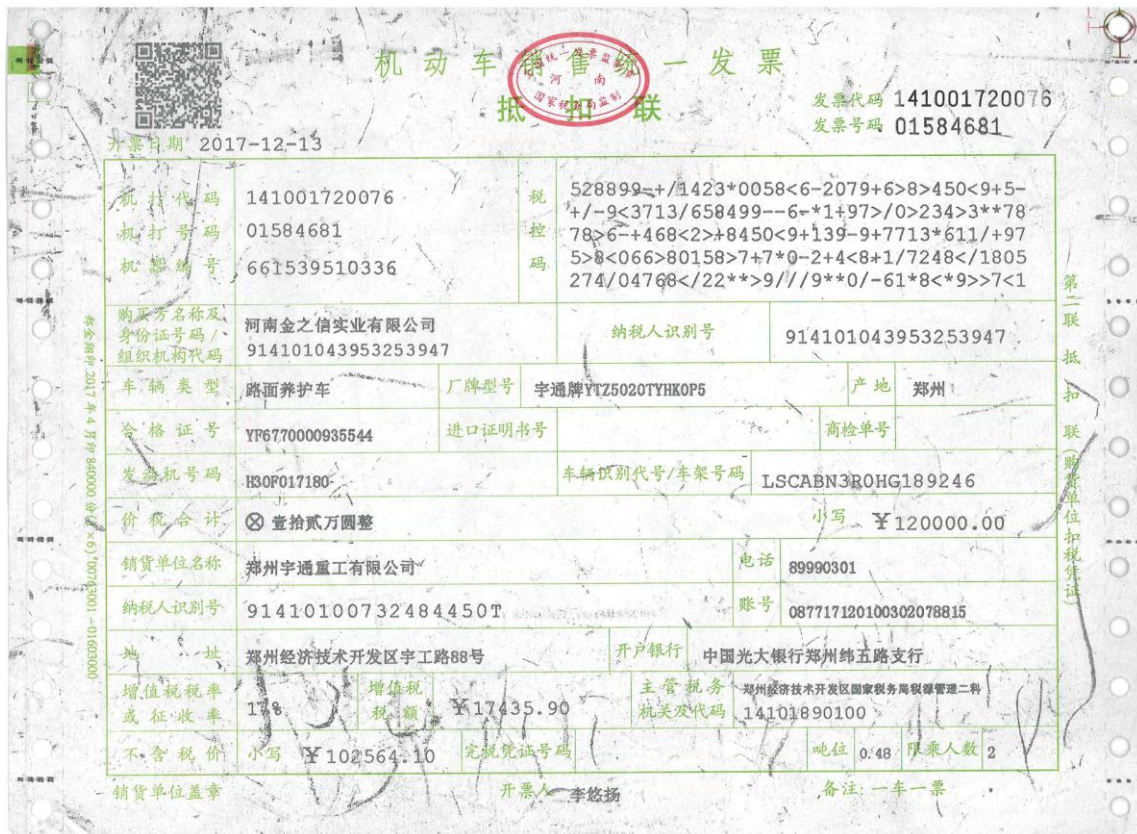 机动车销售统一发票
抵扣联
发票代码 141001720076
发票号码 01584681
开票日期 2017-12-13
机打代码 141001720076
机打号码 01584681
机器编号 661539510336
税控码
528899-+/1423*0058<6-2079+6>8>450<9+5-
+/-9<3713/658499--6-*1+97>/0>234>3**78
78>6-+468<2>+8450<9+139-9+7713*611/+97
5>8<066>80158>7+7*0-2+4<8+1/7248</1805
274/04768</22**>9///9**0/-61*8<*9>>7<1
购买方名称及身份证号码/组织机构代码
河南金之信实业有限公司
914101043953253947
纳税人识别号 914101043953253947
车辆类型 路面养护车 厂牌型号 宇通牌YTZ5020TYHK0P5 产地 郑州
合格证号 YF6770000935544 进口证明书号 商检单号
发动机号码 H30F017180 车辆识别代号/车架号码 LSCABN3R0HG189246
价税合计 ⊗ 壹拾贰万圆整 小写 ￥120000.00
销货单位名称 郑州宇通重工有限公司 电话 89990301
纳税人识别号 91410100732484450T 账号 087717120100302078815
地址 郑州经济技术开发区宇工路88号 开户银行 中国光大银行郑州纬五路支行
增值税税率或征收率 17% 增值税税额 ￥17435.90 主管税务机关及代码 郑州经济技术开发区国家税务局税源管理二科
14101890100
不含税价 小写 ￥102564.10 完税凭证号码 吨位 0.48 限乘人数 2
销货单位盖章 开票人 李悠扬 备注:一车一票
第二联 抵扣联(购货单位扣税凭证)
河南
国家税务局监制